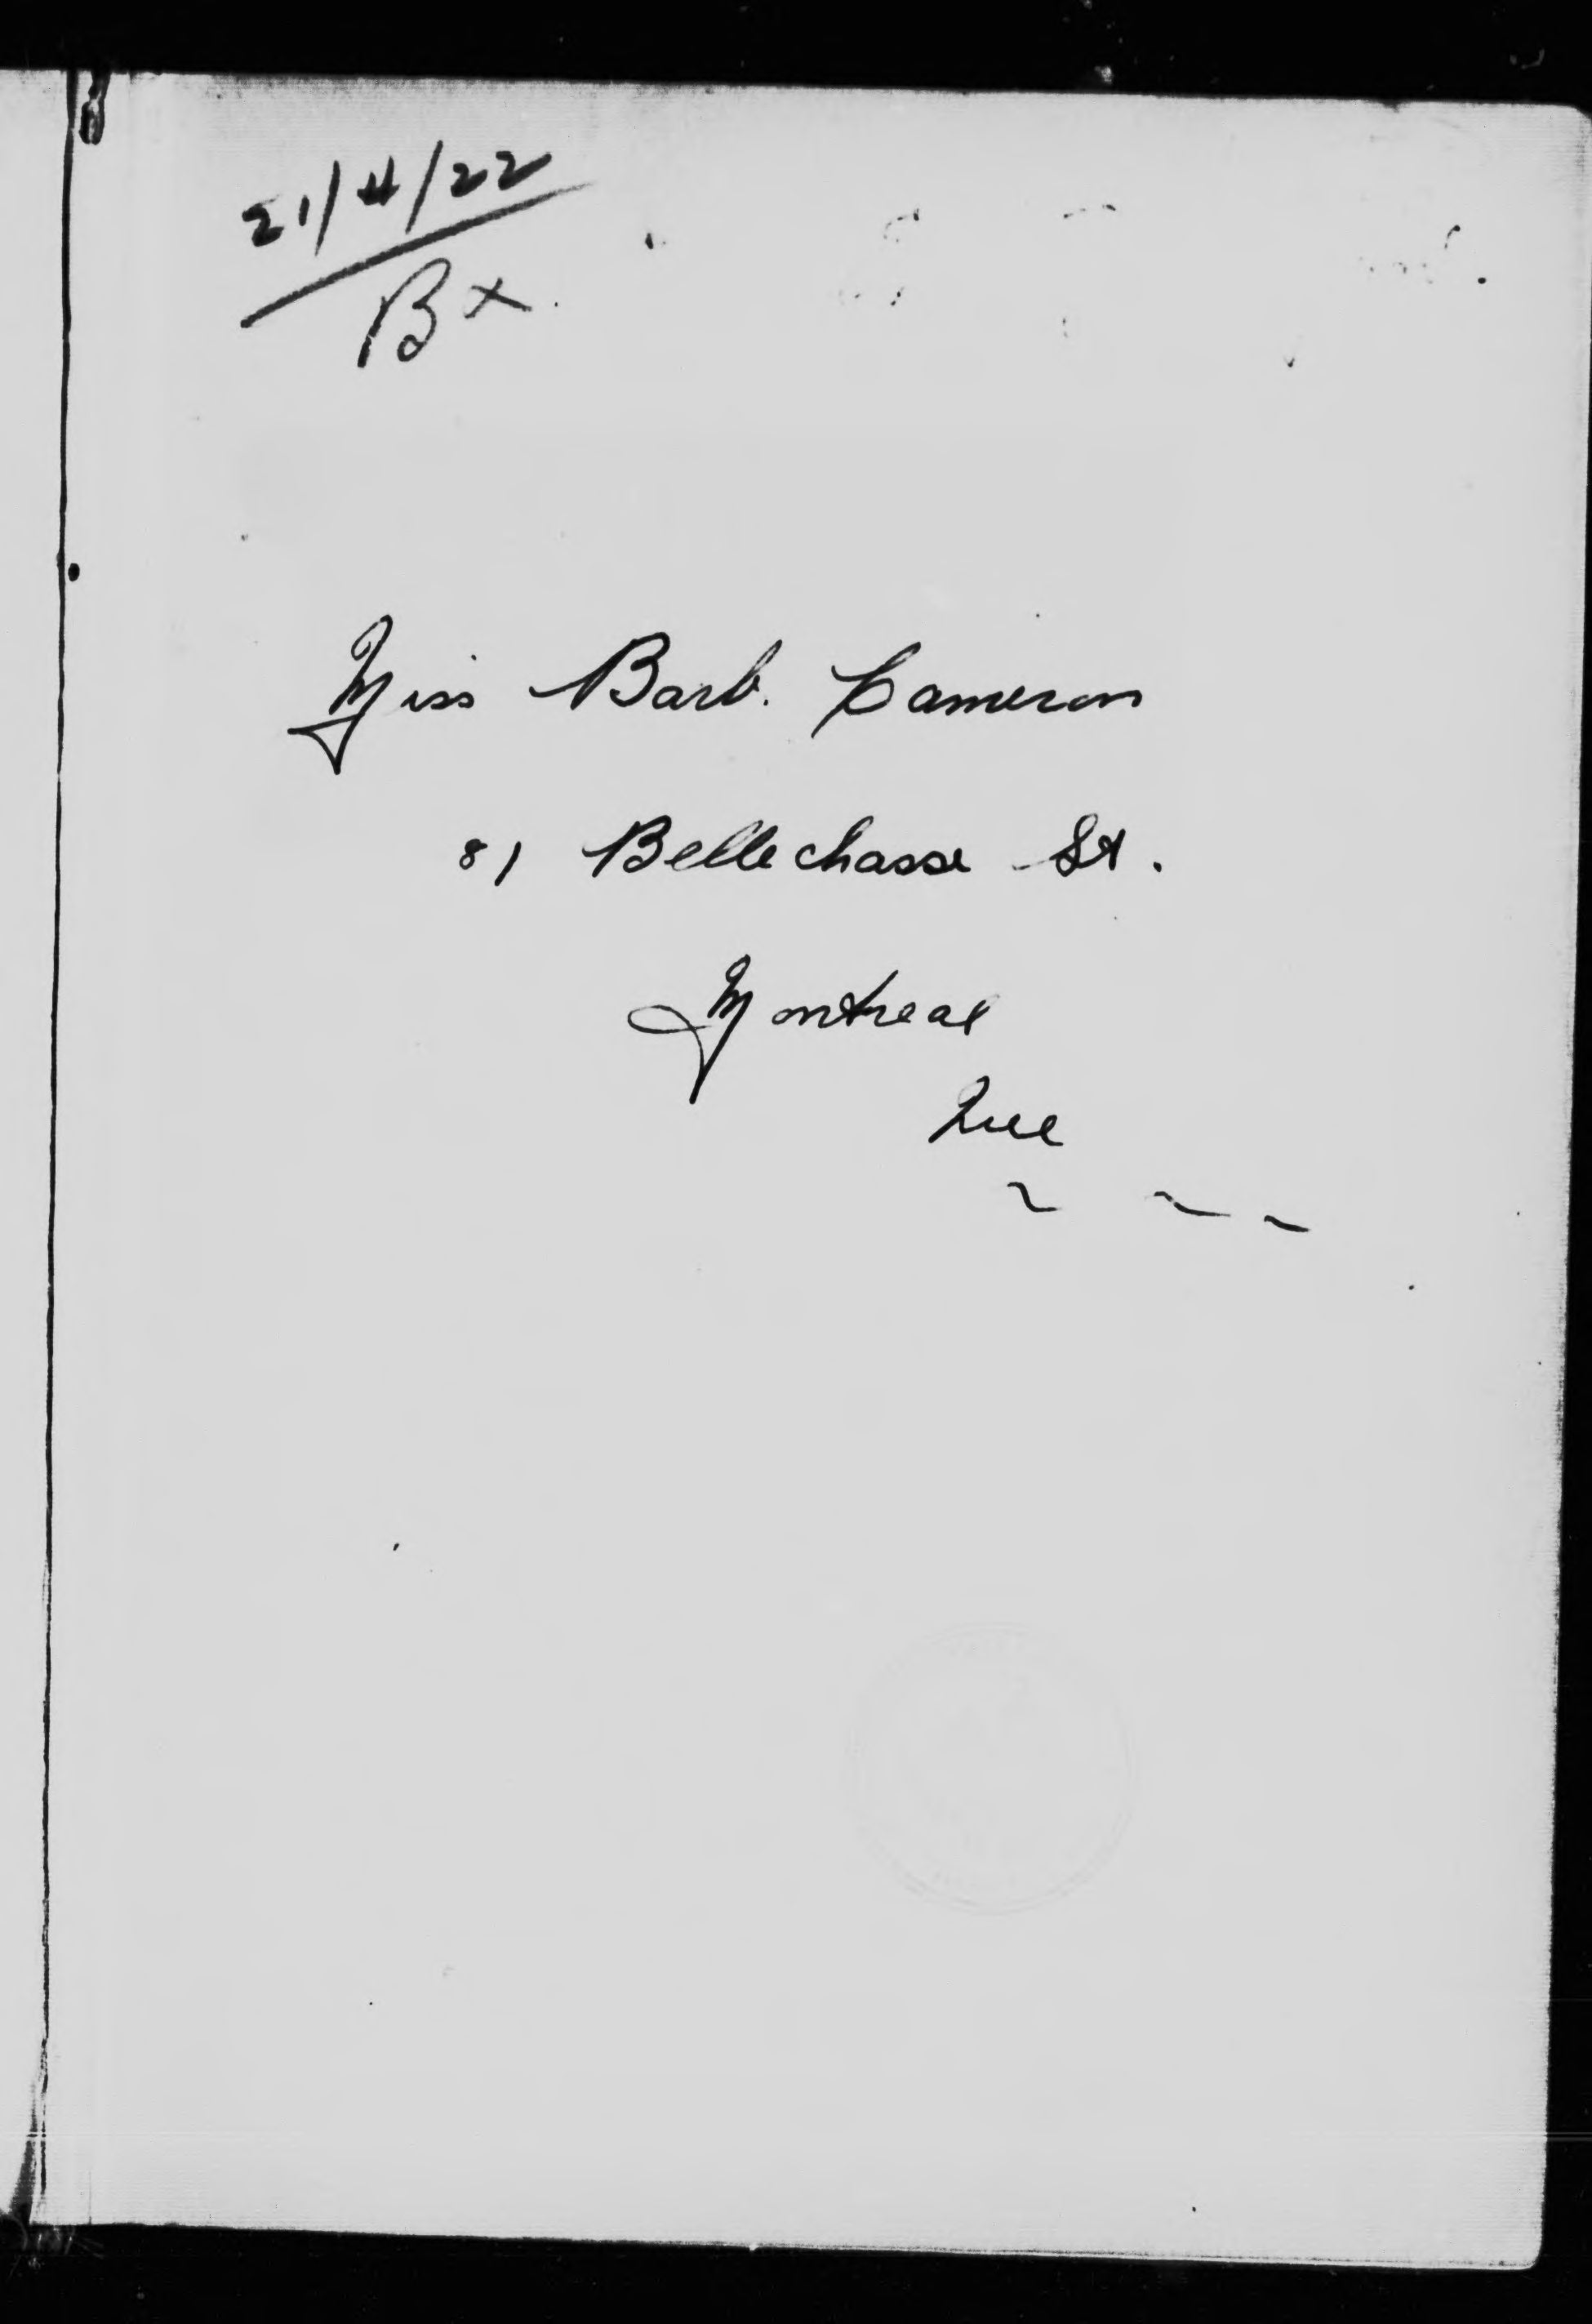 21/4/22
Bx.
Miss Barb. Cameron
81 Bellechasse St.
Montreal
Que